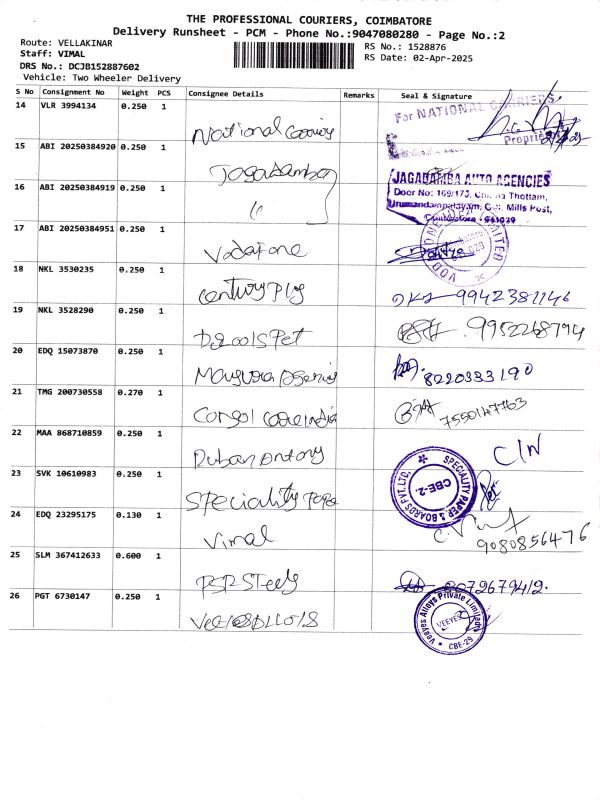 THE PROFESSIONAL COURIERS, COIMBATORE
Delivery Runsheet - PCM - Phone No.:9047080280 - Page No.:2
Route: VELLAKINAR
RS No.: 1528876
Staff: VIMAL
RS Date: 02-Apr-2025
DRS No.: DCJB152887602
Vehicle: Two Wheeler Delivery
S No Consignment No Weight PCS Consignee Details Remarks Seal & Signature
14 VLR 3994134 0.250 1 National For NATIONAL COURIERS
Proprietor
15 ABI 20250384920 0.250 1 Jagadamba
JAGADAMBA AUTO AGENCIES
Door No: 169/173, Thottam,
Urumandampalayam, G.N. Mills Post,
Coimbatore - 641029
16 ABI 20250384919 0.250 1 "
17 ABI 20250384951 0.250 1 Vodafone
18 NKL 3530235 0.250 1 Century Ply 9942381146
19 NKL 3528290 0.250 1 9952268794
20 EDQ 15073870 0.250 1 8220333190
21 TMG 200730558 0.270 1 7550147763
22 MAA 868710859 0.250 1 Ruban Antony C/N
23 SVK 10610983 0.250 1 Speciality
SPECIALITY PAPER & BOARDS PVT.LTD.
CBE-2.
24 EDQ 23295175 0.130 1 Vimal
9080856476
25 SLM 367412633 0.600 1 PSP Steels
26 PGT 6730147 0.250 1
Veeyes Alloys Private Limited
VEEYES
CBE-29